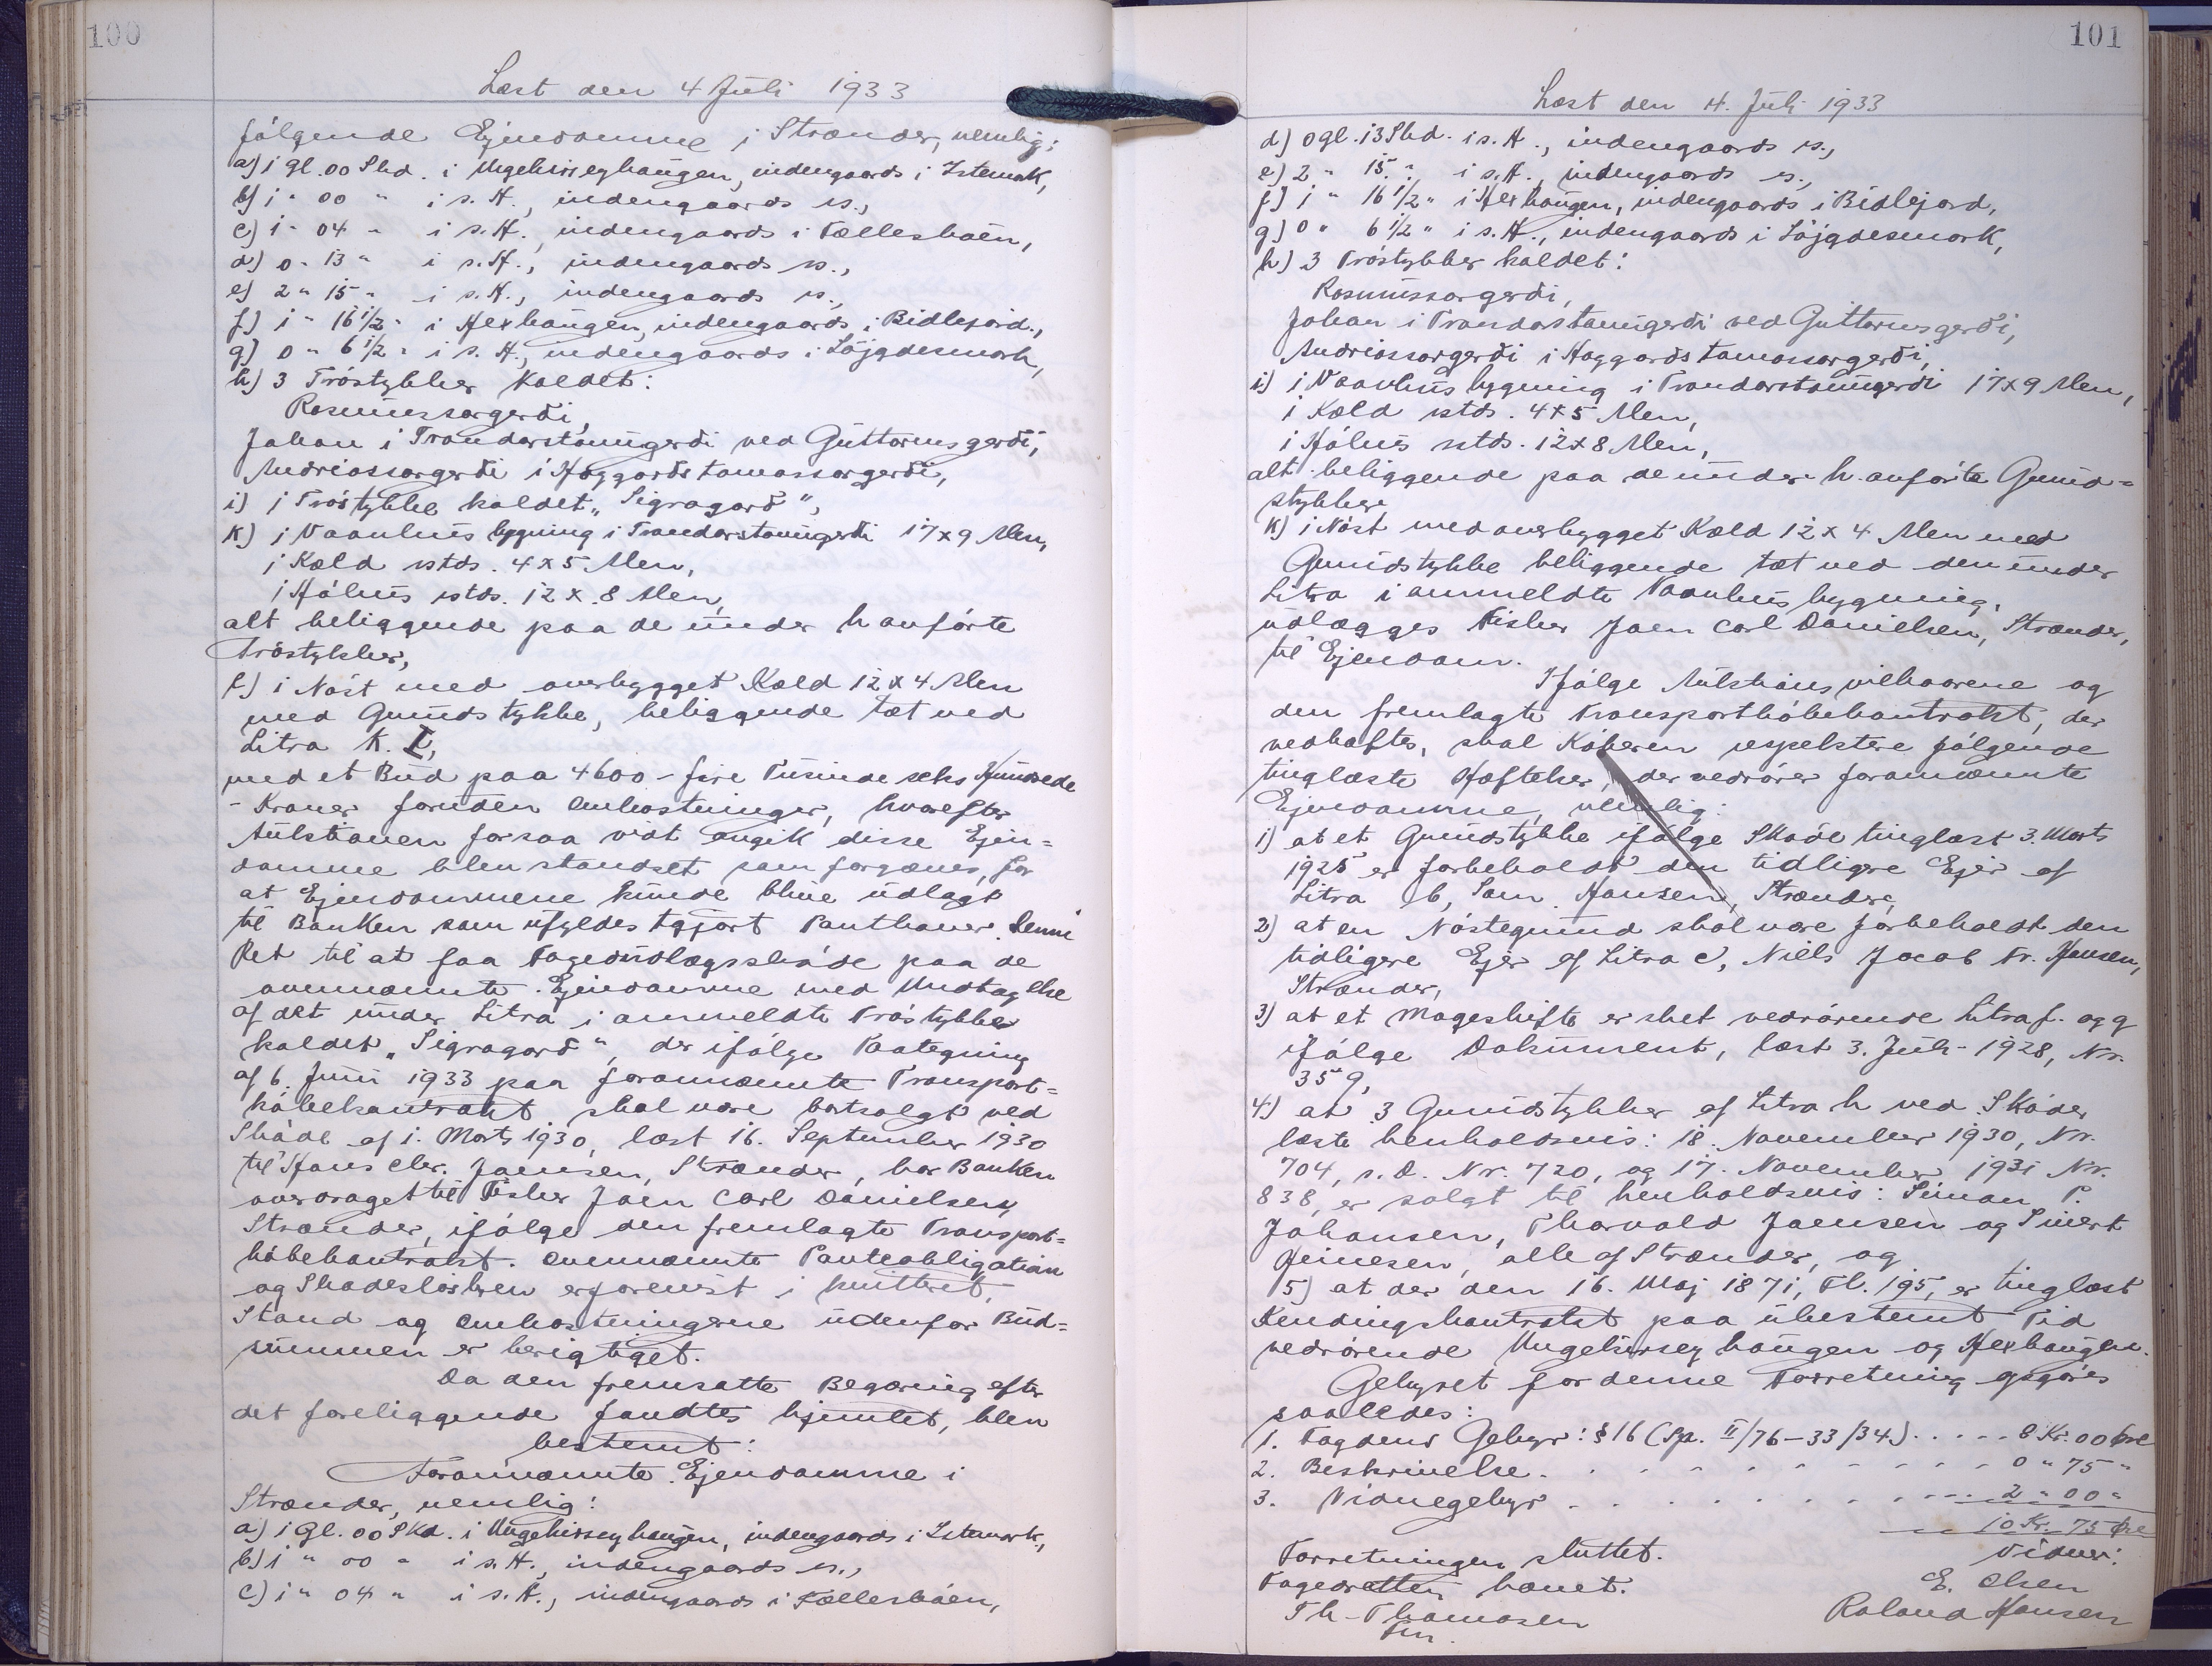 100
Læst den 4 Juli 1933
følgende Ejendomme i Strænder, nemlig:
a) 1 gl. 00 Skd. i Ungehirseyhaugen, indengaards i Istemark,
b) 1 " 00 " i s. H., indengaards ss.,
c) 1 " 04 " i s. H., indengaards i Fællesbøen,
d) 0 " 13 " i s. H., indengaards ss.,
e) 2 " 15 " i s. H., indengaards ss.,
f) 1 " 16 1/2 " i Hexhaugen, indengaards i Bidlejord.,
g) 0 " 6 1/2 " i s. H., indengaards i Løjgdesmark,
h) 3 Trøstykker kaldet:
Rasmussargerði,
Johan i Trandarstovugerði ved Guttormsgerði,
Andriassargerði i Høggardstomassargerði,
i) 1 Trøstykke kaldet „Sigragarð",
k) 1 Vaanhusbygning i Trandarstovugerði 17 x 9 Alen,
1 Kæld sstds. 4 x 5 Alen,
1 Hølhus sstds. 12 x 8 Alen,
alt beliggende paa de under h anførte
Trøstykker,
l) 1 Nøst med overbygget Kæld 12 x 4 Alen
med Grundstykke, beliggende tæt ved
Litra k. I,
med et Bud paa 4600 - fire Tusinde seks Hundrede
- Kroner foruden Omkostninger, hvorefter
Auktionen forsaa vidt angik disse Ejen=
domme blev standset som forgæves, for
at Ejendommene kunde blive udlagt
til Banken som ufyldestgjort Panthaver. Denne
Ret til at faa Fogedudlægsskøde paa de
ovennævnte Ejendomme med Undtagelse
af det under Litra i anmeldte Trøstykke
kaldet „Sigragarð", der ifølge Paategning
af 6. Juni 1933 paa forannævnte Transport=
købekontrakt skal være bortsolgt ved
Skøde af 1. Marts 1930, læst 16. September 1930
til Hans Chr. Joensen, Strænder, har Banken
overdraget til Fisker Joen Carl Danielsen,
Strænder, ifølge den fremlagte Transport=
købekontrakt. Ovennævnte Panteobligation
og Skadesløsbrev er forevist i kvitteret
Stand og Omkostningerne udenfor Bud=
summen er berigtiget.
Da den fremsatte Begæring efter
det foreliggende fandtes hjemlet, blev
bestemt:
Forannævnte Ejendomme i
Strænder, nemlig:
a) 1 Gl. 00 Skd. i Ungehirseyhaugen, indengaards i Istemark.,
b) 1 " 00 " i s. H., indengaards ss.,
c) 1 " 04 " i s. H., indengaards i Fællesbøen,
101
Læst den 4. Juli 1933
d) 0 gl. 13 Skd. i s. H., indengaards ss.,
e) 2 " 15 " i s. H., indengaards ss.,
f) 1 " 16 1/2 " i Hexhaugen, indengaards i Bidlejord,
g) 0 " 6 1/2 " i s. H., indengaards i Løjgdesmork,
h) 3 Trøstykker kaldet:
Rasmussargerði,
Johan i Trandarstovugerði ved Guttormsgerði,
Andriassargerði i Høggardstomassargerði,
i) 1 Vaanhusbygning i Trandarstovugerði 17 x 9 Alen,
1 Kæld sstds. 4 x 5 Alen,
1 Hølhus sstds. 12 x 8 Alen,
alt beliggende paa de under h. anførte Grund=
stykker,
k) 1 Nøst med overbygget Kæld 12 x 4 Alen med
Grundstykke beliggende tæt ved den under
Litra i anmeldte Vaanhusbygning,
udlægges Fisker Joen Carl Danielsen, Strænder,
til Ejendom.
Ifølge Auktionsvilkaarene og
den fremlagte Transportkøbekontrakt, der
vedhæftes, skal Køberen respektere følgende
tinglæste Hæftelser, der vedrører forannævnte
Ejendomme, nemlig:
1) at et Grundstykke ifølge Skøde tinglæst 3. Marts
1925 er forbeholdt den tidligere Ejer af
Litra b, Sam. Hansen, Strænder,
2) at en Nøstegrund skal være forbeholdt den
tidligere Ejer af Litra c, Niels Jacob Fr. Hansen,
Strænder,
3) at et Mageskifte er sket vedrørende Litra f. og g
ifølge Dokument, læst 3. Juli 1928, Nr.
359,
4) at 3 Grundstykker af Litra h ved Skøder
læste henholdsvis: 18. November 1930, Nr.
704, s. D. Nr. 720, og 17. November 1931 Nr.
838, er solgt til henholdsvis: Simon P.
Johansen, Thorvald Joensen og Sivert
Heinesen, alle af Strænder, og
5) at der den 16. Maj 1871, Fl. 195, er tinglæst
Kendingskontrakt paa ubestemt Tid
vedrørende Ungehirseyhaugen og Hexhaugen.
Gebyret for denne Forretning opgøres
saaledes:
1. Fogdens Gebyr: § 16 (Sp. II/76-33/34) . . . . . 8 Kr. 00 Øre
2. Beskrivelse . . . . . . . . . . 0 " 75 "
3. Vidnegebyr . . . . . . . . . . 2 " 00 "
10 Kr. 75 Øre
Forretningen sluttet.
Vidner:
Fogedretten hævet.
E. Olsen
Th. Thomasen
Roland Hansen
Fm.